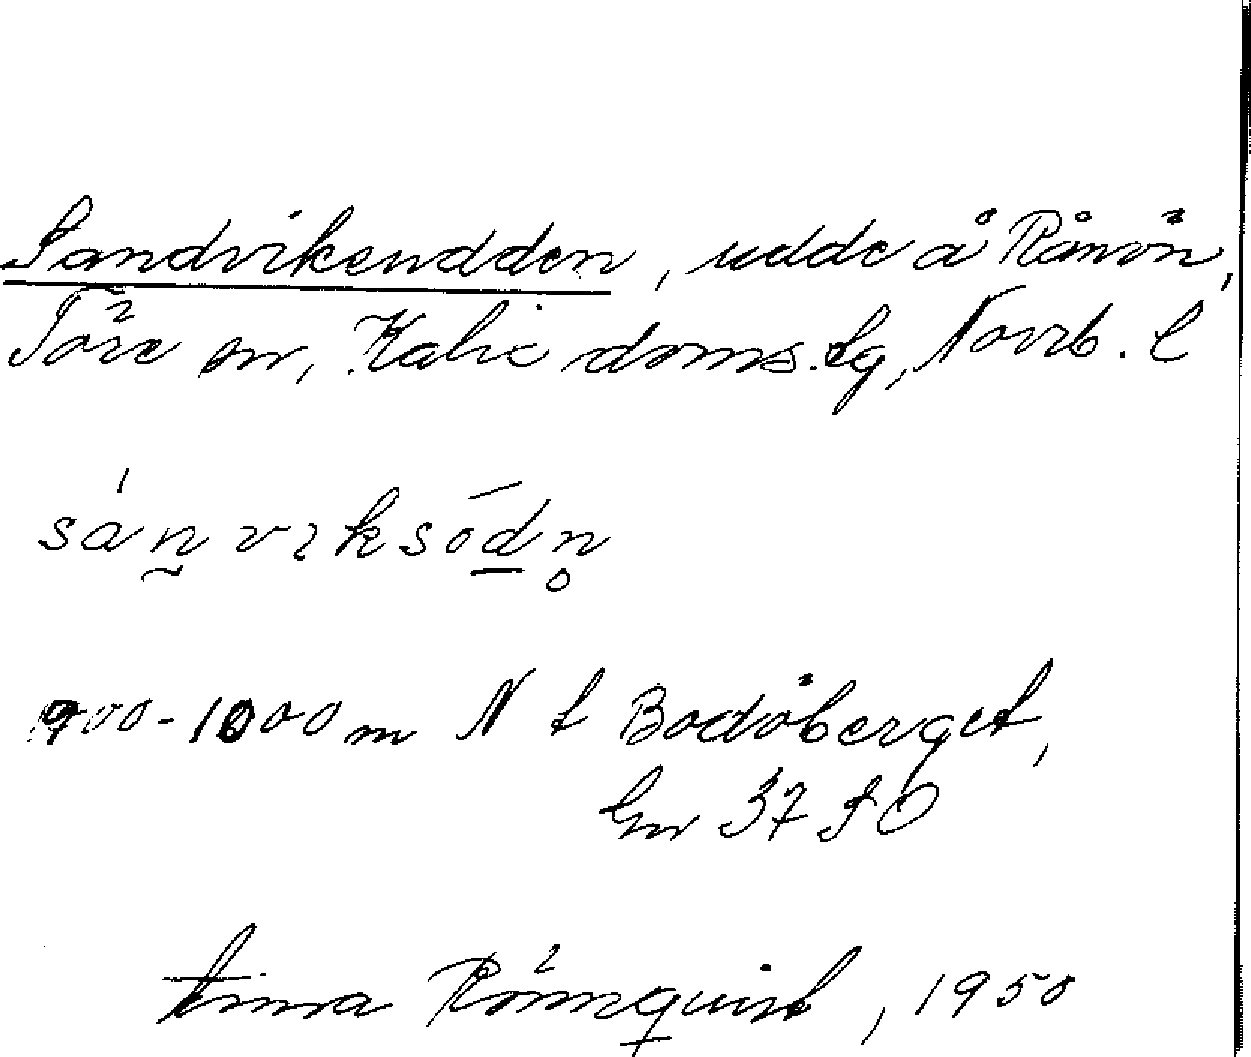 Sandvikeudden, udde å Rånön,
Töre sn, Kalix doms.lg, Norrb. l
sánvıksódn̥
900-1000 m N t Bodöberget,
Gm 37 SO
Anna Rönnquist, 1950